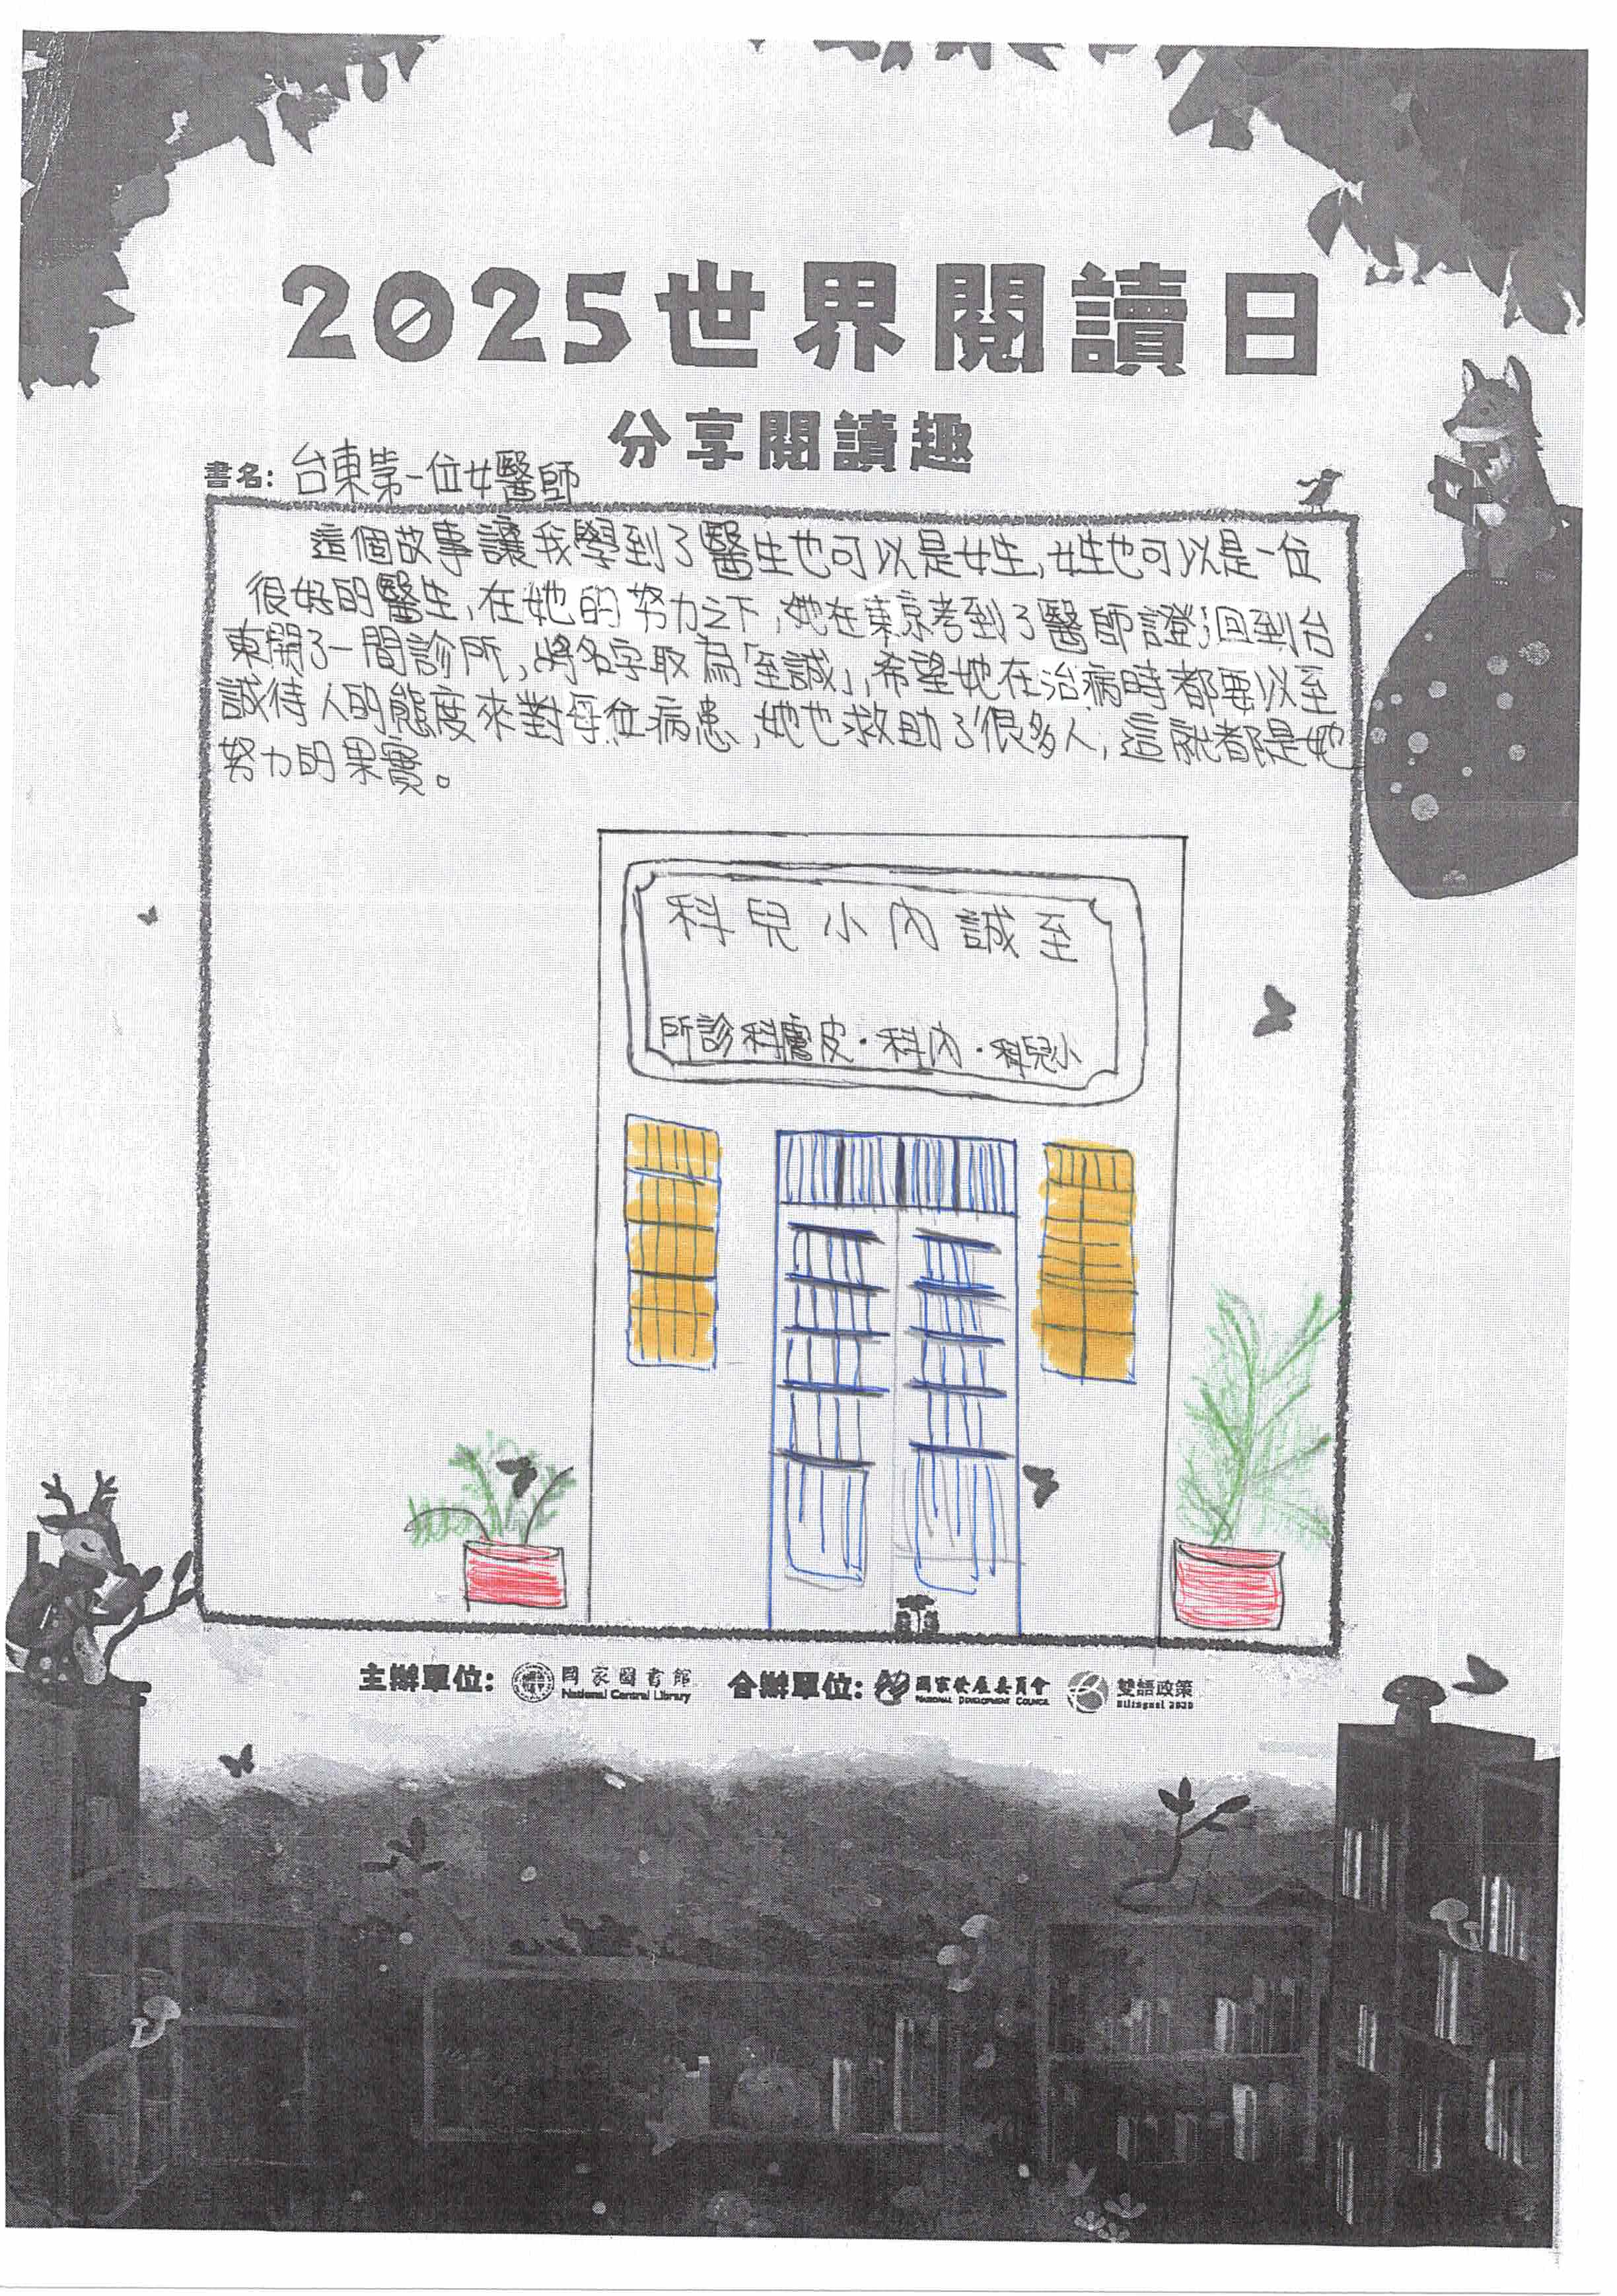 2025世界閱讀日
分享閱讀趣
書名：台東第一位女醫師
這個故事讓我學到了醫生也可以是女生，女生也可以是一位
很好的醫生，在她的努力之下，她在東京考到了醫師證，回到台
東開了一間診所，將名字取為「至誠」，希望她在治病時都要以至
誠待人的態度來對每位病患，她也救助了很多人，這就都是她
努力的果實。
科兒小內誠至
所診科膚皮・科內・科兒小
主辦單位： 國家圖書館 合辦單位： 國家發展委員會 雙語政策
National Central Library NATIONAL DEVELOPMENT COUNCIL Bilingual 2030